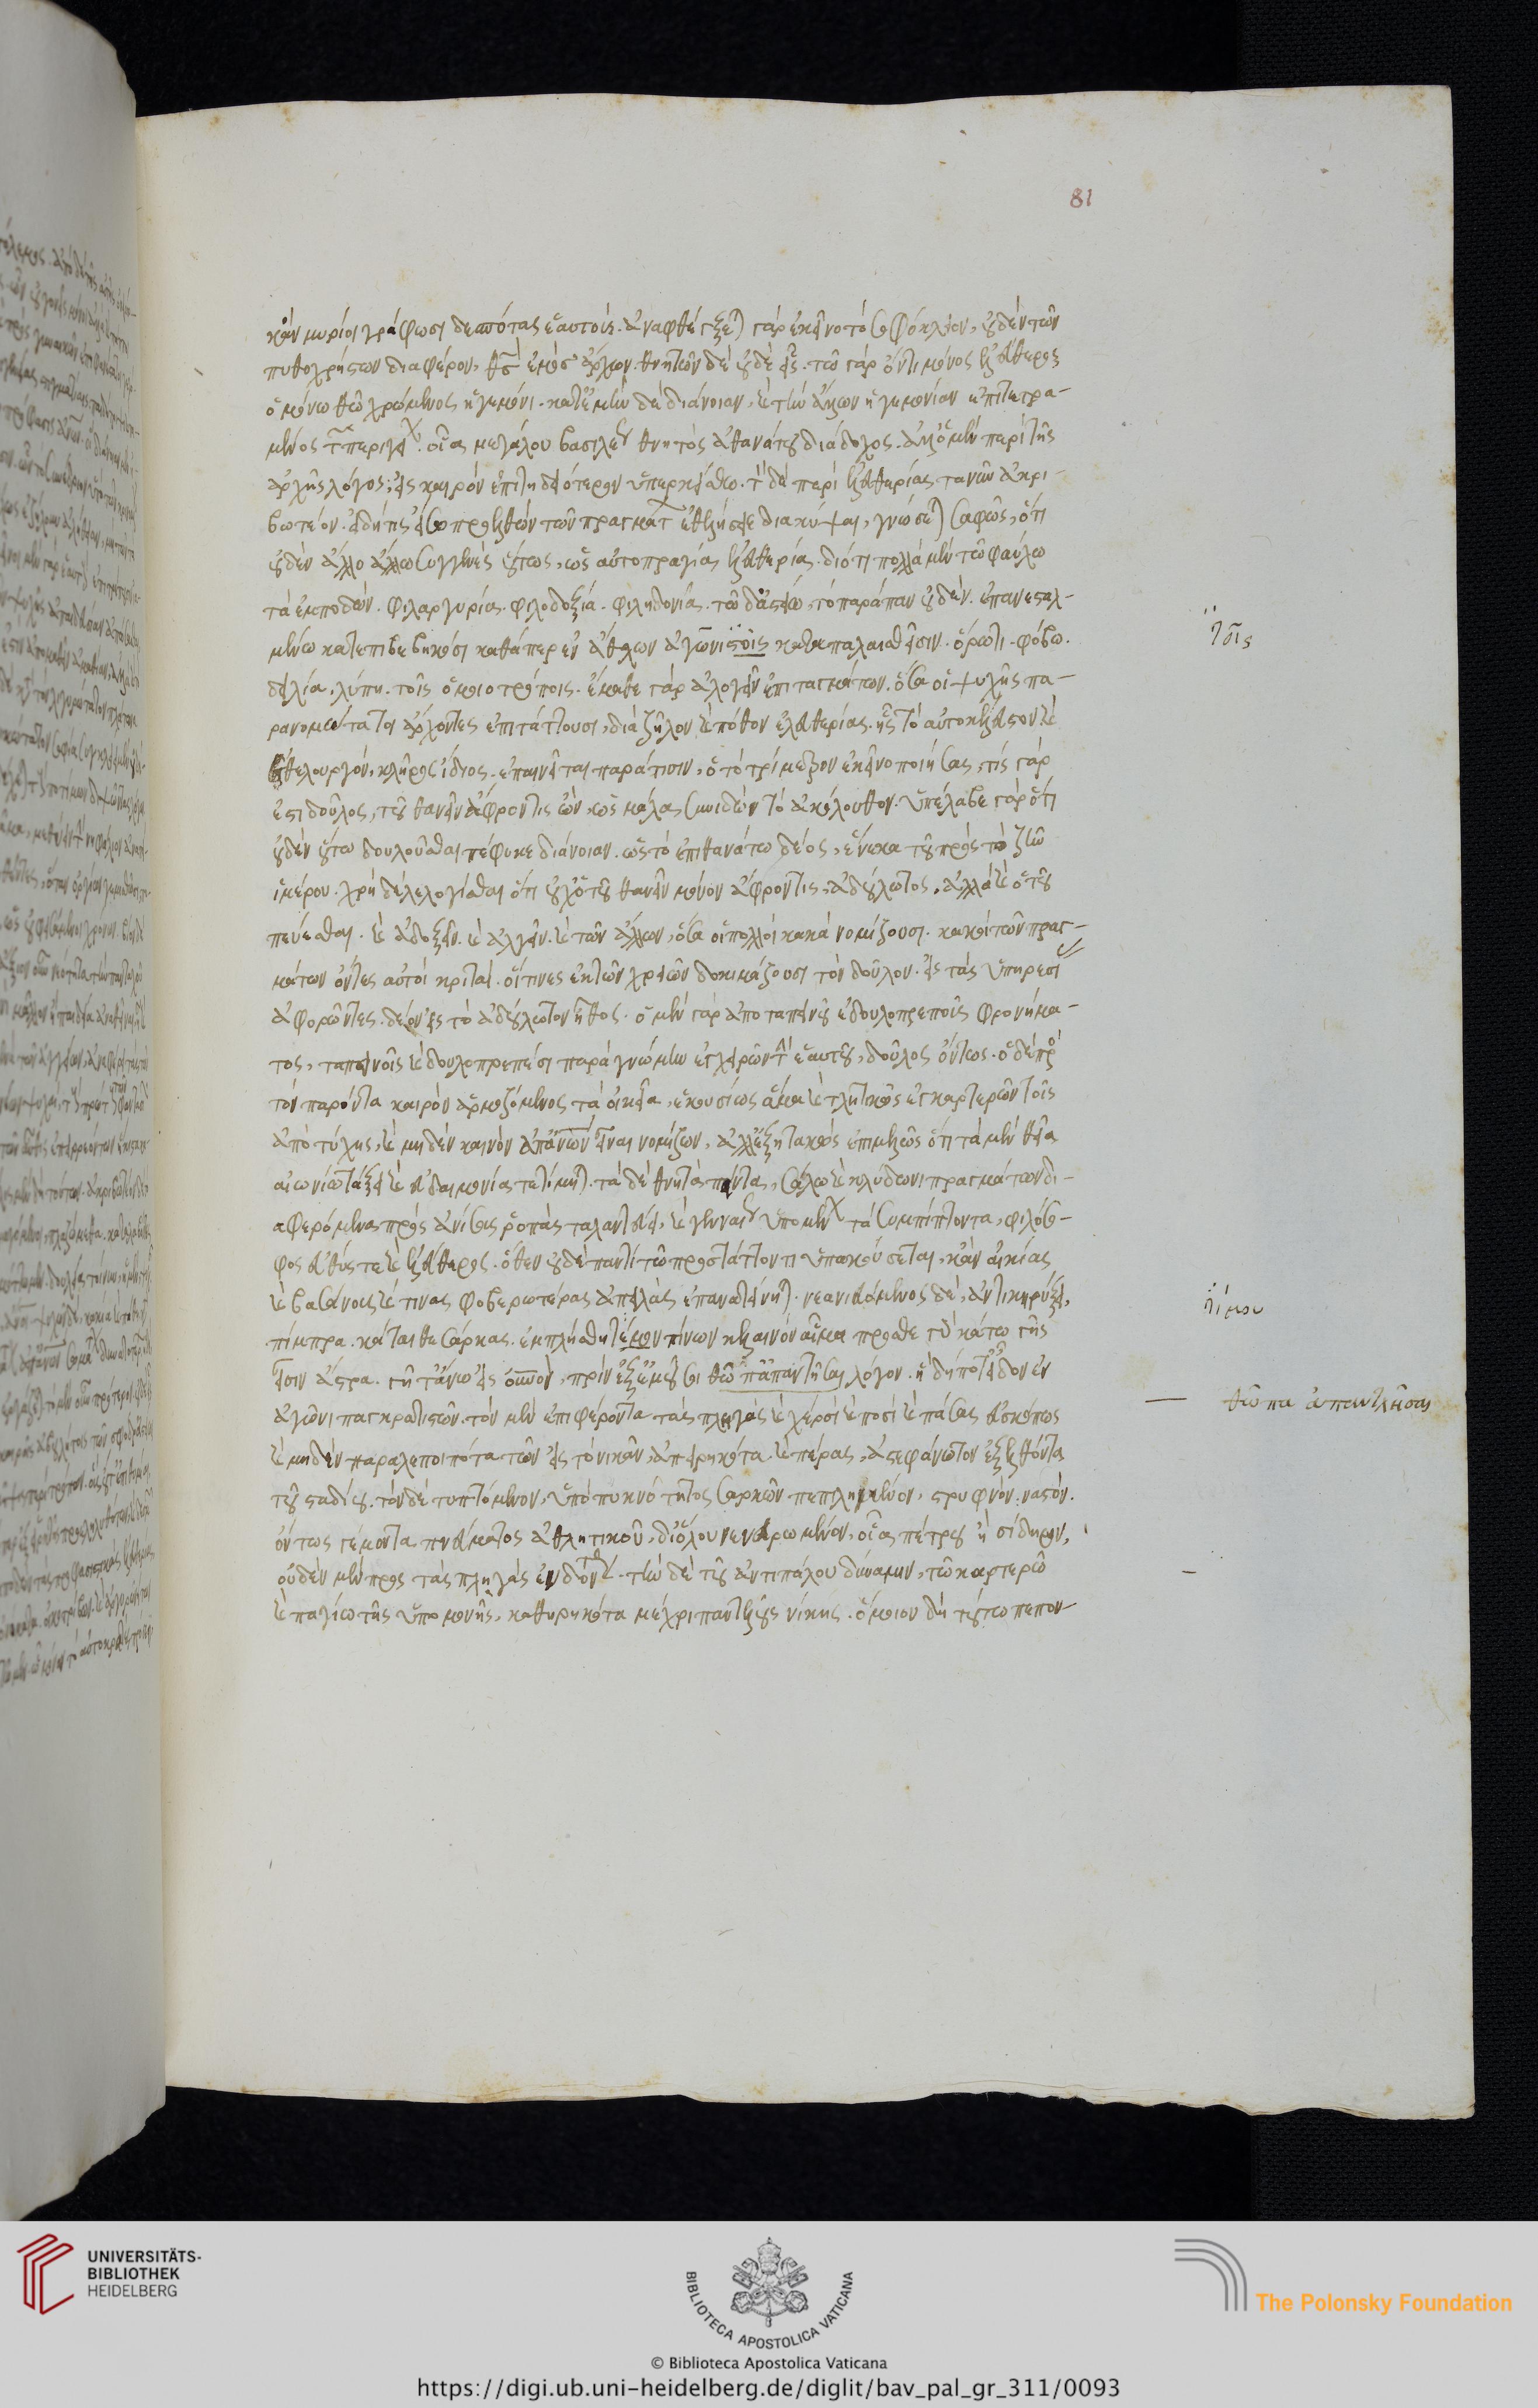 81
κἂν μυρίοι γράφωσι δεσπότας ἑαυτούς. ἀναφθέγξεται γὰρ ἐκεῖνο τὸ σοφόκλειον, οὐδὲν τῶν
πυθοχρήστων διαφέρον, θεὸς ἐμὸς ἄρχων. θνητῶν δὲ οὐδεὶς. τῷ γὰρ ὄντι μόνος ἐλεύθερος
ὁ μόνῳ θεῷ χρώμενος ἡγεμόνι. κατ' ἐμὴν δὲ διάνοιαν, καὶ τῶν ἄλλων ἡγεμὼν ἐπιτετρα-
μμένος τὰ περίγεια. οἷα μεγάλου βασιλέως θνητὸς ἀθανάτου διάδοχος. ἀλλ' ὁ μὲν περὶ τῆς
ἀρχῆς λόγος, εἰς καιρὸν ἐπιτηδειότερον ὑπερκείσθω. τὸν δὲ περὶ ἐλευθερίας τανῦν ἀκρι-
βωτέον. εἰ δή τις εἴσω προελθὼν τῶν πραγμάτων ἐθελήσειε διακύψαι, γνώσεται σαφῶς, ὅτι
οὐδὲν ἄλλο ἄλλῳ συγγενὲς οὕτως, ὡς αὐτοπραγία ἐλευθερία. διότι πολλὰ μὲν τῷ φαύλῳ
τὰ ἐμποδών. φιλαργυρία. φιλοδοξία. φιληδονία. τῷ δ' ἀστείῳ, τὸ παράπαν οὐδέν. ἐπανεσταλ-
μένῳ κατεπιβεβηκότι καθάπερ ἐν ἄθλων ἀγῶνι τοῖς καταπαλαισθεῖσιν. ἔρωτι. φόβῳ.
δειλίᾳ. λύπῃ. τοῖς ὁμοιοτρόποις. ἔμαθε γὰρ ἀλογεῖν ἐπιταγμάτων. ὅσα οἱ ψυχῆς πα-
ρανομώτατοι ἄρχοντες ἐπιτάττουσι, διὰ ζῆλον καὶ πόθον ἐλευθερίας. ἧς τὸ αὐτοκέλευστον καὶ
ἐθελουργὸν, κλῆρος ἴδιος. ἐπαινεῖται παρά τισιν, ὁ τὸ τρίμετρον ἐκεῖνο ποιήσας, τίς γάρ
ἐστι δοῦλος, τοῦ θανεῖν ἄφροντις ὤν, ὡς μάλα συνιδὼν τὸ ἀκόλουθον. ὑπέλαβε γὰρ ὅτι
οὐδὲν οὕτω δουλοῦσθαι πέφυκε διάνοιαν. ὡς τὸ ἐπὶ θανάτῳ δέος, ἕνεκα τοῦ πρὸς τὸ ζῆν
ἱμέρου. χρὴ δὲ λελογίσθαι ὅτι οὐχ ὁ τοῦ θανεῖν μόνον ἄφροντις, ἀδούλωτος. ἀλλὰ καὶ ὁ τοῦ
πένεσθαι. καὶ ἀδοξεῖν. καὶ ἀλγεῖν. καὶ τῶν ἄλλων, ὅσα οἱ πολλοὶ κακὰ νομίζουσι. κακοὶ τῶν πραγ-
μάτων ὄντες αὐτοὶ κριταί. οἵτινες ἐκ τῶν χρειῶν δοκιμάζουσι τὸν δοῦλον. εἰς τὰς ὑπηρεσίας
ἀφορῶντες. δέον εἰς τὸ ἀδούλωτον ἦθος. ὁ μὲν γὰρ ἀπὸ ταπεινοῦ καὶ δουλοπρεποῦς φρονήμα-
τος, ταπεινοῖς καὶ δουλοπρεπέσι παρὰ γνώμην ἐγχειρῶν τὴν ἑαυτοῦ, δοῦλος ὄντως. ὁ δὲ πρὸς
τὸν παρόντα καιρὸν ἁρμοζόμενος τὰ οἰκεῖα, ἑκουσίως ἅμα καὶ τλητικῶς ἐγκαρτερῶν τοῖς
ἀπὸ τύχης, καὶ μηδὲν καινὸν ἀπάντων εἶναι νομίζων, ἀλλ' ἐξητακὼς ἐπιμελῶς ὅτι τὰ μὲν θεῖα
αἰωνίῳ τάξει καὶ εὐδαιμονίᾳ τετίμηται. τὰ δὲ θνητὰ πάντα, σάλῳ καὶ κλύδωνι πραγμάτων δι-
αφερόμενα πρὸς ἀνίσους ῥοπὰς ταλαντεύει, καὶ γενναίως ὑπομένων τὰ συμπίπτοντα, φιλόσο-
φος εὐθύς τε καὶ ἐλεύθερος. ὅθεν οὐδὲ παντὶ τῷ προστάττοντι ὑπακούσεται, κἂν αἰκίας
καὶ βασάνους καί τινας φοβερωτέρας ἀπειλὰς ἐπανατείνηται. νεανιευόμενος δὲ, ἀντικηρύξει,
πίμπρα. κάταιθε σάρκας. ἐμπλήσθητέ μου πίνων κελαινὸν αἷμα πρόσθε γὰρ κάτω γῆς
εἶσιν ἄστρα. γῆ τ' ἄνω εἰς οὐρανὸν, πρὶν ἐξ ἐμοῦ σοι θῶπ' ἀπαντῆσαι λόγον. ἤδη ποτ' εἶδον ἐν
ἀγῶνι παγκρατιαστῶν. τὸν μὲν ἐπιφέροντα τὰς πληγὰς καὶ χερσὶ καὶ ποσὶ καὶ πάσας εὐσκόπως
καὶ μηδὲν παραλελοιπότα τῶν εἰς τὸ νικᾶν, ἀπειρηκότα. καὶ πέρας, ἀστεφάνωτον ἐξελθόντα
τοῦ σταδίου. τὸν δὲ τυπτόμενον, ὑπὸ πυκνότητος σαρκῶν πεπιλημένον, στρυφνὸν. ναστόν.
ὄντως γέμοντα πνεύματος ἀθλητικοῦ, δι' ὅλου νενευρωμένον, οἷα πέτρον ἢ σίδηρον,
οὐδὲν μὲν πρὸς τὰς πληγὰς ἐνδόντα. τὴν δὲ τοῦ ἀντιπάλου δύναμιν, τῷ καρτερῷ
καὶ παγίῳ τῆς ὑπομονῆς, καθῃρηκότα μέχρι παντελοῦς νίκης. ὅμοιον δή τι τούτῳ πεπον-
μου
θῶπα ἀπαντλῆσαι
UNIVERSITÄTS-
BIBLIOTHEK
HEIDELBERG
BIBLIOTECA APOSTOLICA VATICANA
The Polonsky Foundation
© Biblioteca Apostolica Vaticana
https://digi.ub.uni-heidelberg.de/diglit/bav_pal_gr_311/0093